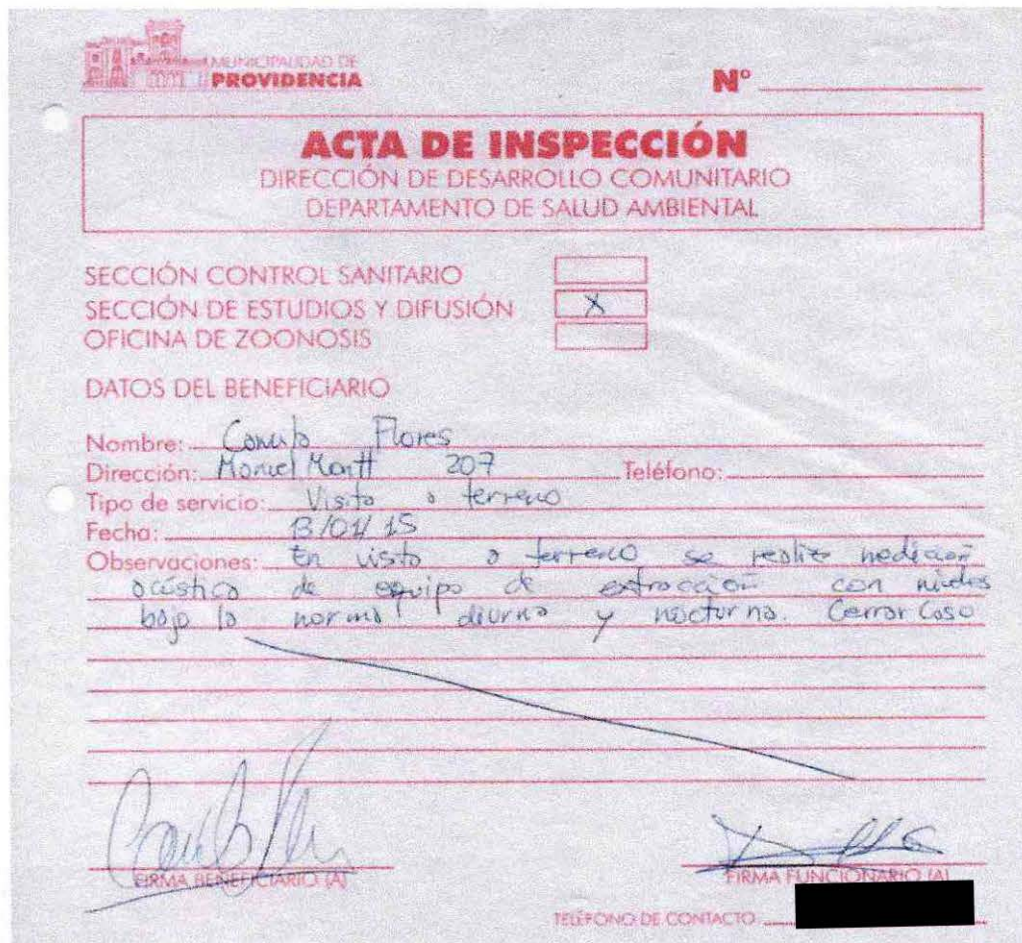 MUNICIPALIDAD DE
PROVIDENCIA
Nº
ACTA DE INSPECCIÓN
DIRECCIÓN DE DESARROLLO COMUNITARIO
DEPARTAMENTO DE SALUD AMBIENTAL
SECCIÓN CONTROL SANITARIO
SECCIÓN DE ESTUDIOS Y DIFUSIÓN X
OFICINA DE ZOONOSIS
DATOS DEL BENEFICIARIO
Nombre: Camilo Flores
Dirección: Manuel Montt 207 Teléfono:
Tipo de servicio: Visita a terreno
Fecha: 13/01/15
Observaciones: En visita a terreno se realiza medición
acústica de equipo de extracción con niveles
bajo la norma diurna y nocturna. Cerrar Caso
FIRMA BENEFICIARIO (A)
FIRMA FUNCIONARIO (A)
TELÉFONO DE CONTACTO